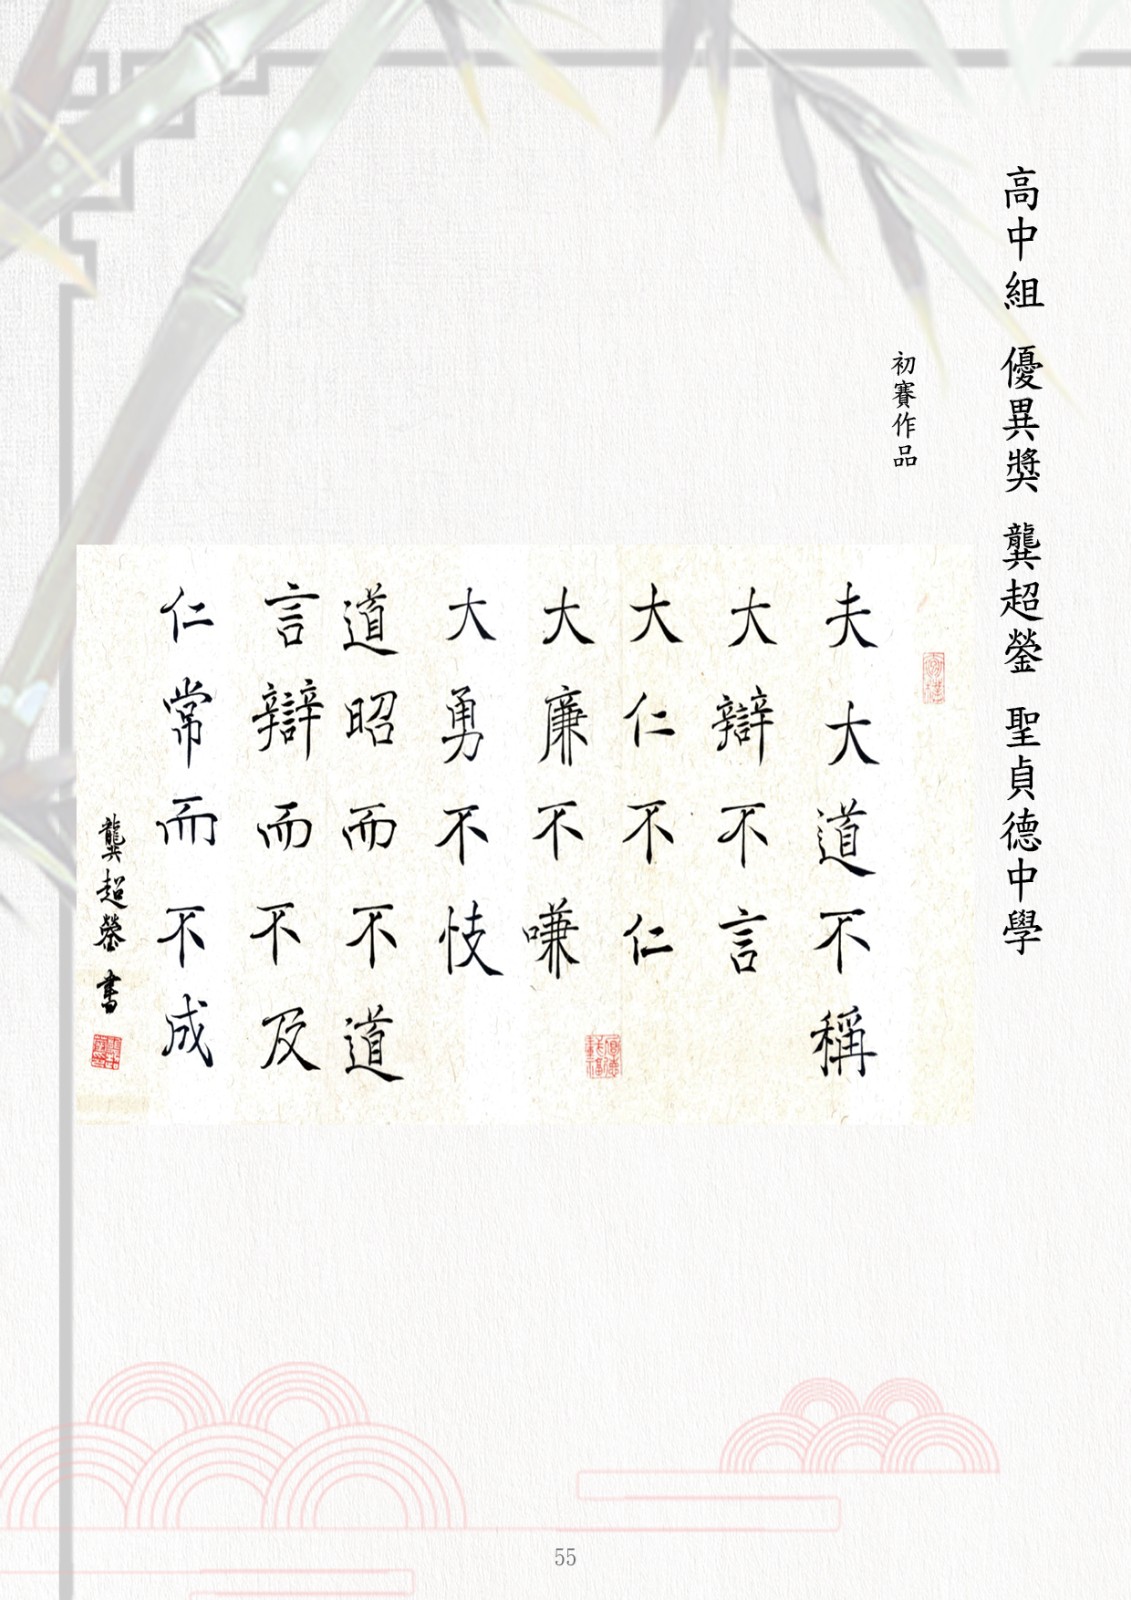 高中組 優異獎 龔超鎣 聖貞德中學
初賽作品
夫大道不稱
大辯不言
大仁不仁
大廉不嗛
大勇不忮
道昭而不道
言辯而不及
仁常而不成
龔超鎣書
55